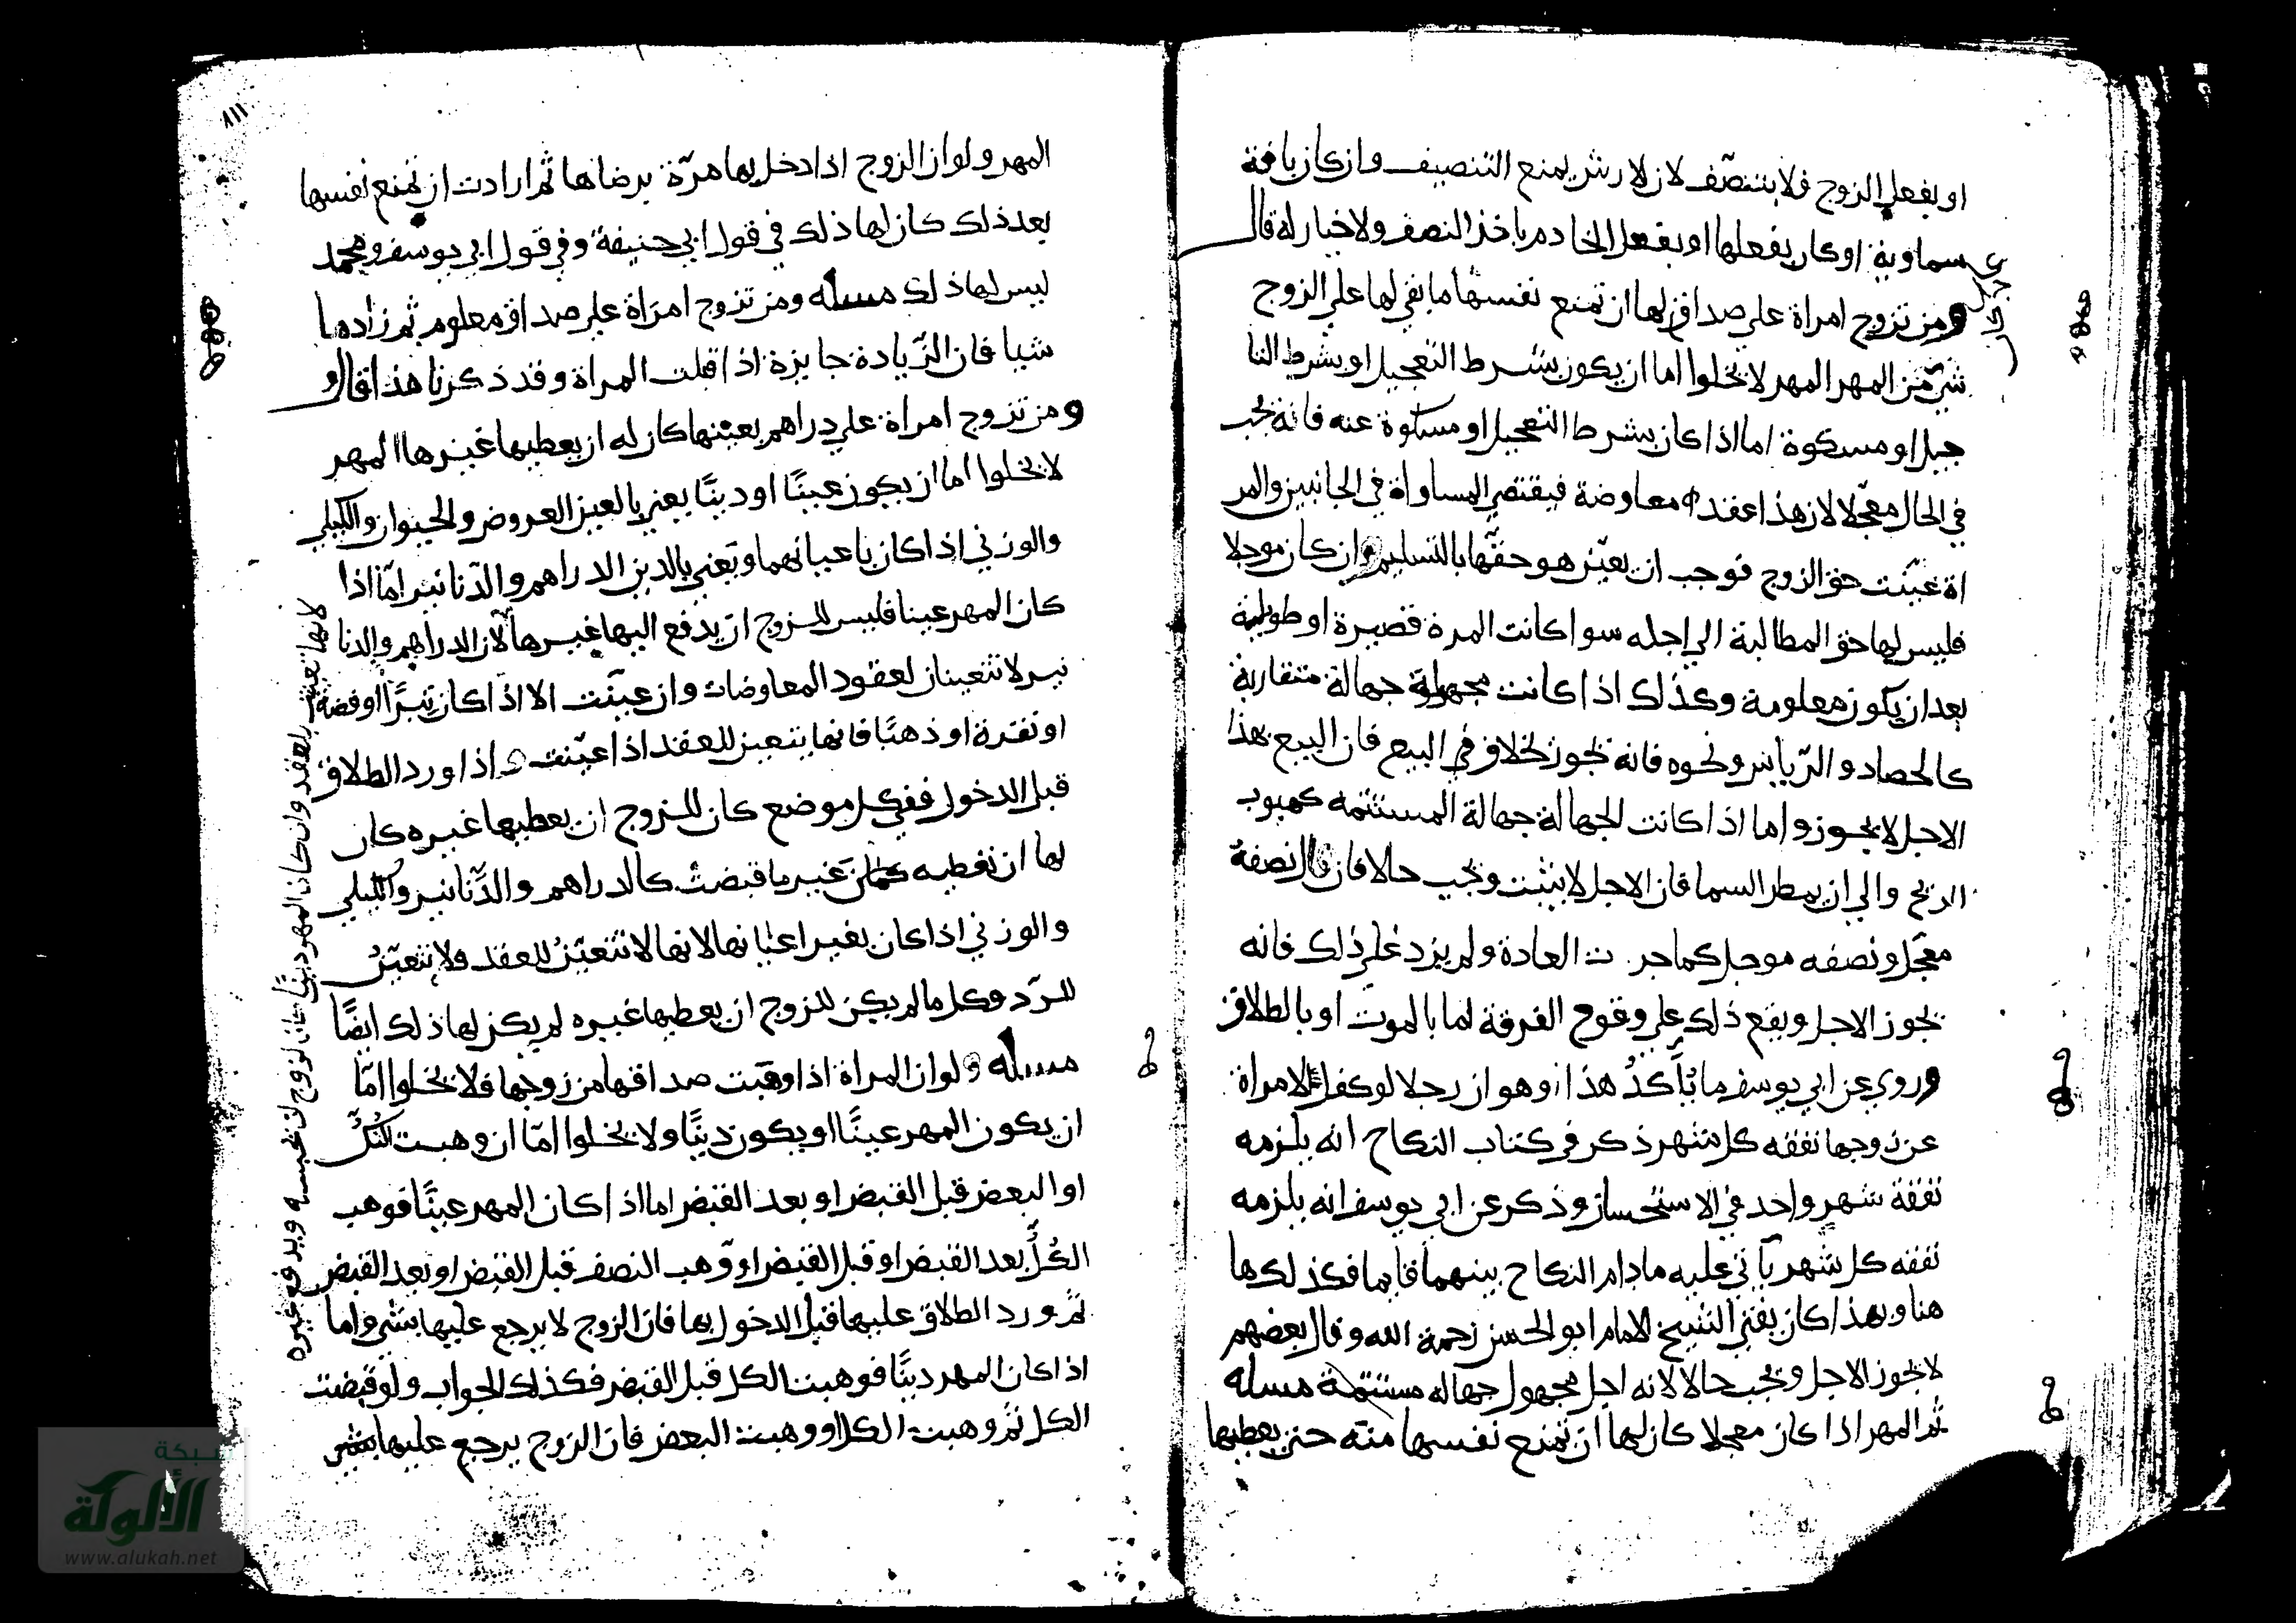 او بفعل الزوج فلا يتنصّف لان الارش يمنع التنصيف وان كان بافة
سماوية او كان بفعلها او بفعل الخادم ياخذ النصف ولا خيار له قال
ومن تزوج امراة على صداق لها ان تمنع نفسها ما بقي لها على الزوج
شئ من المهر المهر لا يخلوا اما ان يكون بشرط التعجيل او بشرط التا
جيل او مسكوة اما اذا كان بشرط التعجيل او مسكوة عنه فانه يجب
في الحال معجّلا لان هذا عقد معاوضة فيقتضي المساواة في الجانبين والمر
اة عيّنت حق الزوج فوجب ان يعيّن هو حقّها بالتسليم وان كان موجلا
فليس لها حق المطالبة الى اجله سوا كانت المدة قصيرة او طويلة
بعد ان يكون معلومة وكذلك اذا كانت مجهولة جهالة متقاربة
كالحصاد والدّياس ونحوه فانه يجوز بخلاف في البيع فان البيع بهذا
الاجل لا يجوز واما اذا كانت الجهالة جهالة المستتمه كهبوب
الريح والى ان يمطر السما فان الاجل لا يثبت ويجب حالا فان قال نصفه
معجّل ونصفه موجل كما جرت العادة ولم يزد على ذلك فانه
يجوز الاجل ويقع ذلك على وقوع الفرقة اما بالموت او بالطلاق
وروي عن ابي يوسف ما يأكدُ هذا وهو ان رجلا لو كفل لامراة
عن زوجها نفقه كل شهر ذكر في كتاب النكاح انه يلزمه
نفقة شهر واحد في الاستحسان وذكر عن ابي يوسف انه يلزمه
نفقه كل شهر يأتي عليه مادام النكاح بينهما قايما فكذلك ها
هنا وبهذا كان يفتي الشيخ الامام ابو الحسن رحمة الله وقال بعضهم
لا يجوز الاجل ويجب حالا لانه اجل مجهول جهاله مستتمة مسله
ثم المهر اذا كان معجلا كان لها ان تمنع نفسها منه حتى يعطيها
٨١١
المهر ولو ان الزوج اذا دخل بها مرّة برضاها ثم ارادت ان تمنع نفسها
بعد ذلك كان لها ذلك في قول ابي حنيفة وفي قول ابي يوسف ومحمد
ليس لها ذلك مسله ومن تزوج امراة على صداق معلوم ثم زادها
شيا فان الزّيادة جايزة اذا قبلت المراة وقد ذكرنا هذا قال
ومن تزوج امراة على دراهم بعينها كان له ان يعطيها غيرها المهر
لا يخلوا اما ان يكون عينًا او دينًا يعني بالعين العروض والحيوان والكيلي
والوزني اذا كان باعيانهما ويعني بالدين الدراهم والدّنانير امّا اذا
كان المهر عينا فليس للزوج ان يدفع اليها غيرها لان الدراهم والدنا
نير لا تتعينان لعقود المعاوضات وان عيّنت الا اذا كان تبرًا او فضة
او نقرة او ذهبًا فانها يتعين للعقد اذا عيّنت واذا ورد الطلاق
قبل الدخول ففي كل موضع كان للزوج ان يعطيها غيره كان
لها ان تعطيه غير ما قبضت كالدراهم والدّنانير والكيلي
والوزني اذا كان بغير اعيانها لانها لا تتعيّنُ للعقد ولا تتعيّنُ
للردّ وكل ما لم يكن للزوج ان يعطيها غيره لم يكن لها ذلك ايضًا
مسله ولو ان المراة اذا وهبت صداقها من زوجها فلا يخلوا امّا
ان يكون المهر عينًا او يكون دينًا ولا يخلوا امّا ان وهبت الكُلّ
او البعض قبل القبض او بعد القبض اما اذا كان المهر عينًا فوهب
الكُلّ بعد القبض او قبل القبض او وهب النصف قبل القبض او بعد القبض
ثم ورد الطلاق عليها قبل الدخول بها فان الزوج لا يرجع عليها بشي واما
اذا كان المهر دينًا فوهبت الكل قبل القبض فكذلك الجواب ولو قبضت
الكل ثم وهبت الكل او وهبت البعض فان الزوج يرجع عليها بشي
لانها تعين بالعقد وان كان المهر دينًا كان لزوج ان يحبسه ويدفع غيره
شبكة
الألوكة
www.alukah.net